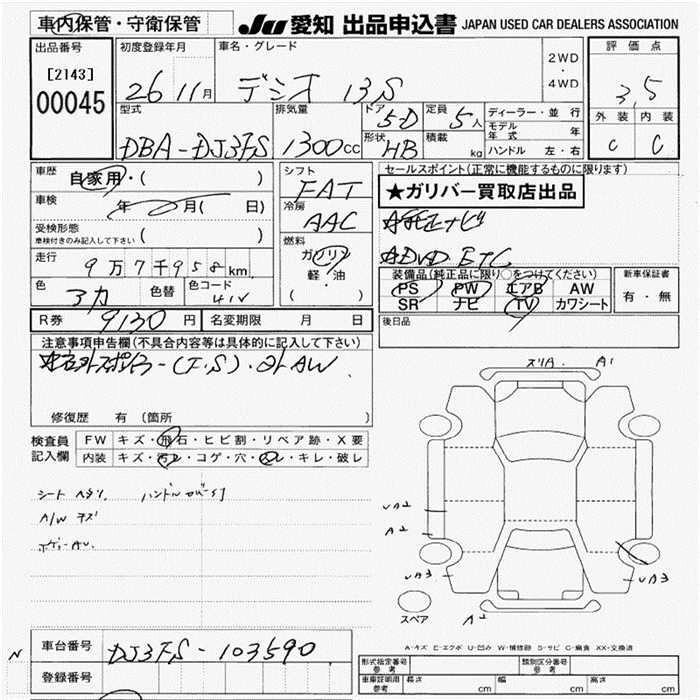 車内保管・守衛保管
JU 愛知 出品申込書 JAPAN USED CAR DEALERS ASSOCIATION
出品番号
[2143]
00045
初度登録年月
26 11月
車名・グレード
デミオ 13S
2WD
・
4WD
評価点
3,5
外装 内装
C C
型式
DBA-DJ3FS
排気量
1300cc
ドア
5-D
定員
5人
形状
HB
積載
kg
ディーラー・並行
モデル年式 年
ハンドル 左・右
車歴
自家用・( )
車検
年 月( 日)
受検形態
車検付きのみ記入して下さい
( )
走行
9万7千958km
色
アカ
色替
色コード
41V
シフト
FAT
冷房
AAC
燃料
ガソリン
軽・油
( )
セールスポイント(正常に機能するものに限ります)
★ガリバー買取店出品
ナビ
DVD ETC
装備品(純正品に限り○をつけてください)
PS PW エアB AW
SR ナビ TV カワシート
新車保証書
有・無
後日品
R券 9130円
名変期限 月 日
注意事項申告欄(不具合内容等は具体的に記入して下さい)
AW
修復歴 有 (箇所
検査員
記入欄
FW キズ・飛石・ヒビ割・リペア跡・X要
内装 キズ・汚レ・コゲ・穴・スレ・キレ・破レ
シート ヘタリ. ハンドル
A/W キズ
スリA. A1
UA2
A2
UA3
UA3
A2
スペア
A-キズ E-エクボ U-凹み W-補修跡 S-サビ C-腐食 XX-交換済
N
車台番号 DJ3FS-103590
登録番号
形式指定番号
参考
類別区分番号
参考
車庫証明用
参考
長さ cm 幅 cm 高さ cm